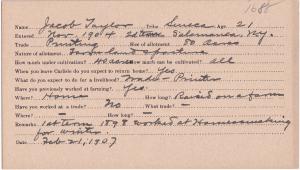 1688
Name, Jacob Taylor Tribe Seneca Age 21
Entered Nov. 1904 2d term Salamanca, N.Y.
Trade Printing Size of allotment: 80 acres
Nature of allotment: Farm land & pasture
How much under cultivation? 40 acres How much can be cultivated? all
When you leave Carlisle do you expect to return home? Yes
What do you expect to do for a livelihood? Trade - Printer
Have you previously worked at farming? Yes.
Where? Home How long? Raised on a farm
Have you worked at a trade? No What trade? —
Where? — How long? —
Remarks: 1st term 1898 worked at Harnessmaking
for winter.
Date Feb 21, 1907